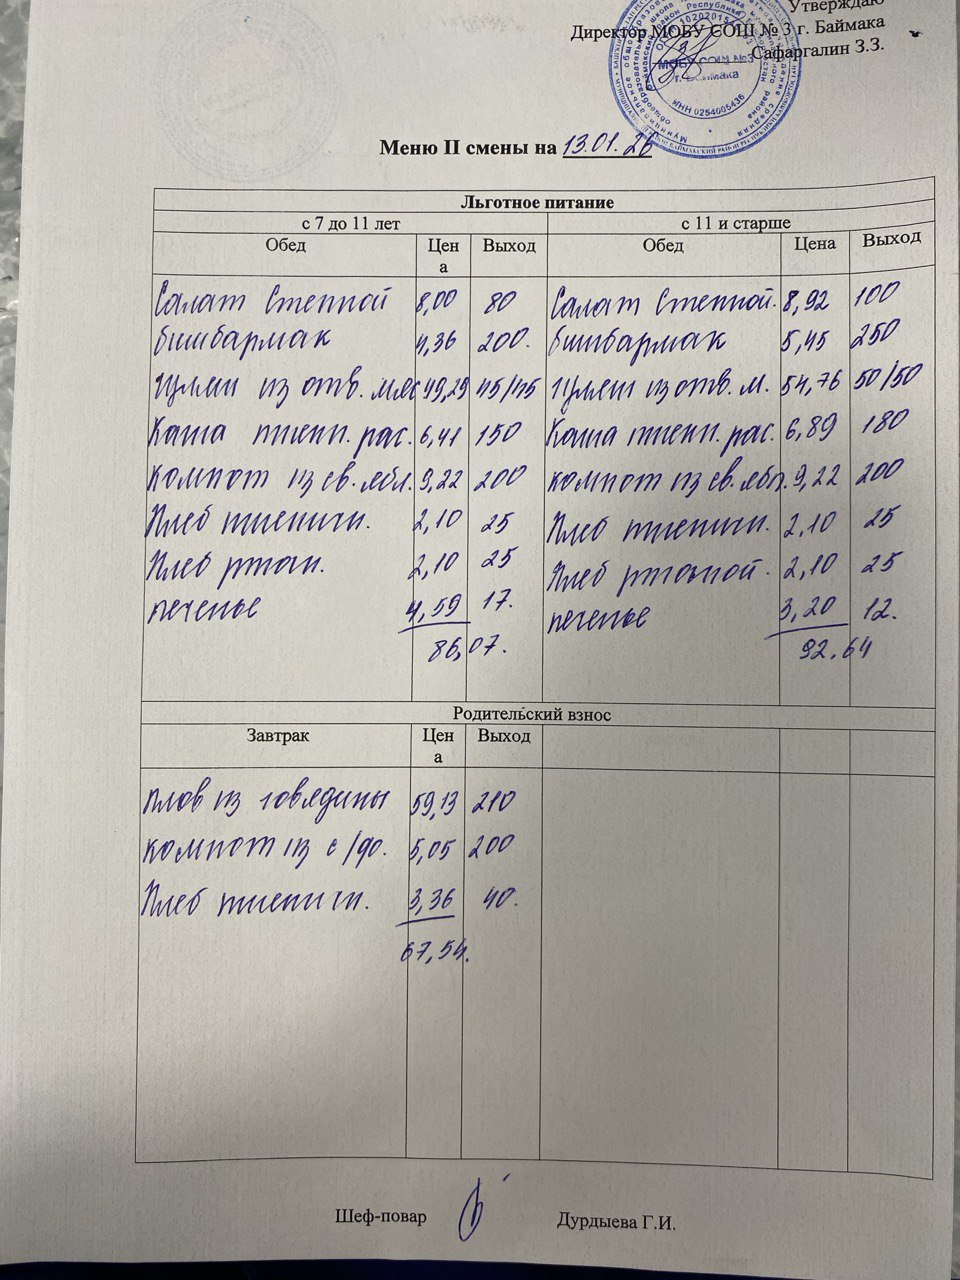 Утверждаю
Директор МОБУ СОШ № 3 г. Баймака
Сафаргалин З.З.
МОБУ СОШ №3
г. Баймака
ИНН 0254005436
Меню II смены на 13.01.26
Льготное питание
с 7 до 11 лет с 11 и старше
Обед Цена Выход Обед Цена Выход
Салат Степной 8,00 80 Салат Степной. 8,92 100
бишбармак 4,36 200. бишбармак 5,45 250
гуляш из отв. мяс 49,29 45/45 гуляш из отв. м. 54,76 50/50
Каша пшен. рас. 6,41 150 Каша пшен. рас. 6,89 180
компот из св. ябл. 9,22 200 компот из св. ябл. 9,22 200
Хлеб пшенич. 2,10 25 Хлеб пшенич. 2,10 25
Хлеб ржан. 2,10 25 Хлеб ржаной. 2,10 25
печенье 4,59 17. печенье 3,20 12.
86,07. 92.64
Родительский взнос
Завтрак Цена Выход
плов из говядины 59,13 210
компот из с/фр. 5,05 200
Хлеб пшенич. 3,36 40.
67,54.
Шеф-повар Дурдыева Г.И.